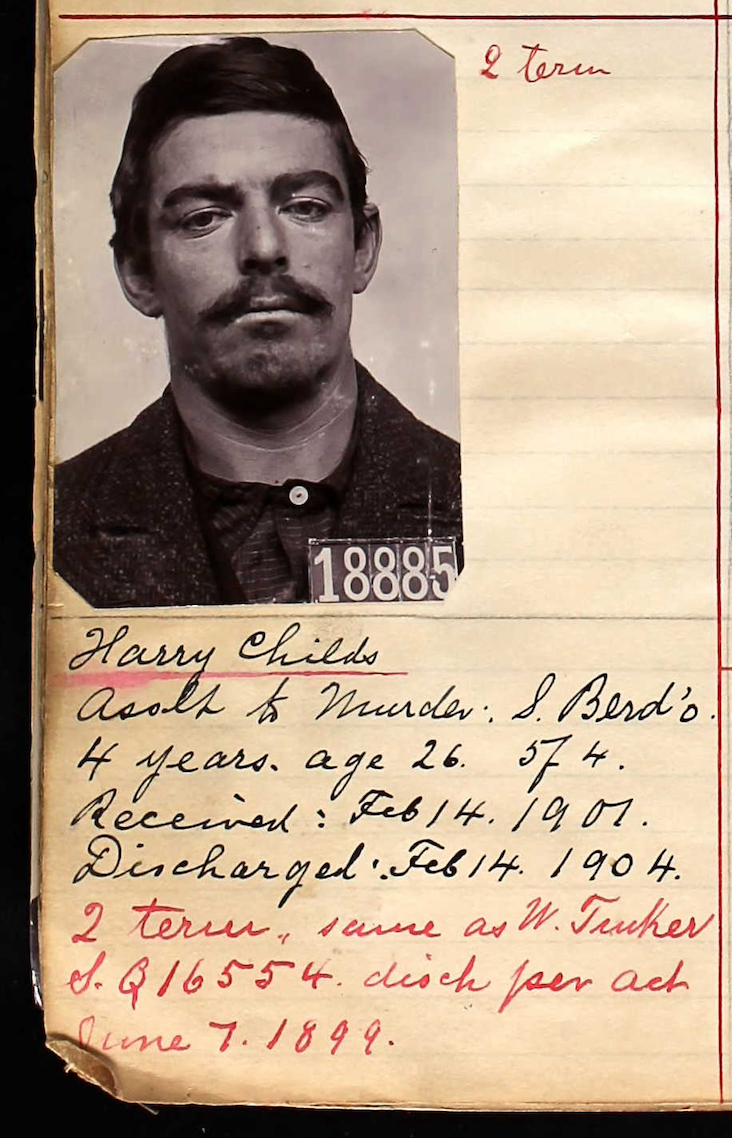 2 term
18885
Harry Childs
Asslt to Murder. S. Berd'o.
4 years. age 26. 5f 4.
Received: Feb 14. 1901.
Discharged: Feb 14. 1904.
2 term, same as W. Tucker
S. Q 16554. disch per act
June 7. 1899.